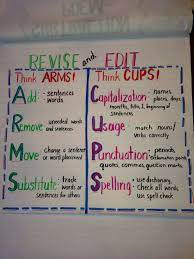 REVISE and EDIT
Think ARMS!
Add - sentences
- words
Remove - unneeded words
and sentences
Move - change a sentence
or word placement
Substitute - trade
words or
sentences for others
Think CUPS!
Capitalization - names,
places, days,
months, titles, I, beginning of
sentences
Usage - match nouns/
verbs correctly
Punctuation - periods,
quotes, commas, question marks
Spelling - use
dictionary,
check all words,
use spell check